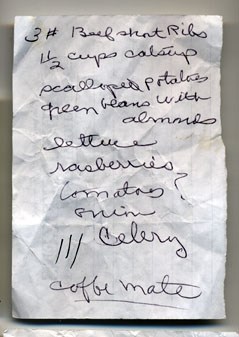 3# Beef short Ribs
1 1/2 cups catsup
scalloped potatoes
green beans with
almonds
lettuce
rasberries
tomatoes ?
onion
/// Celery
coffe mate